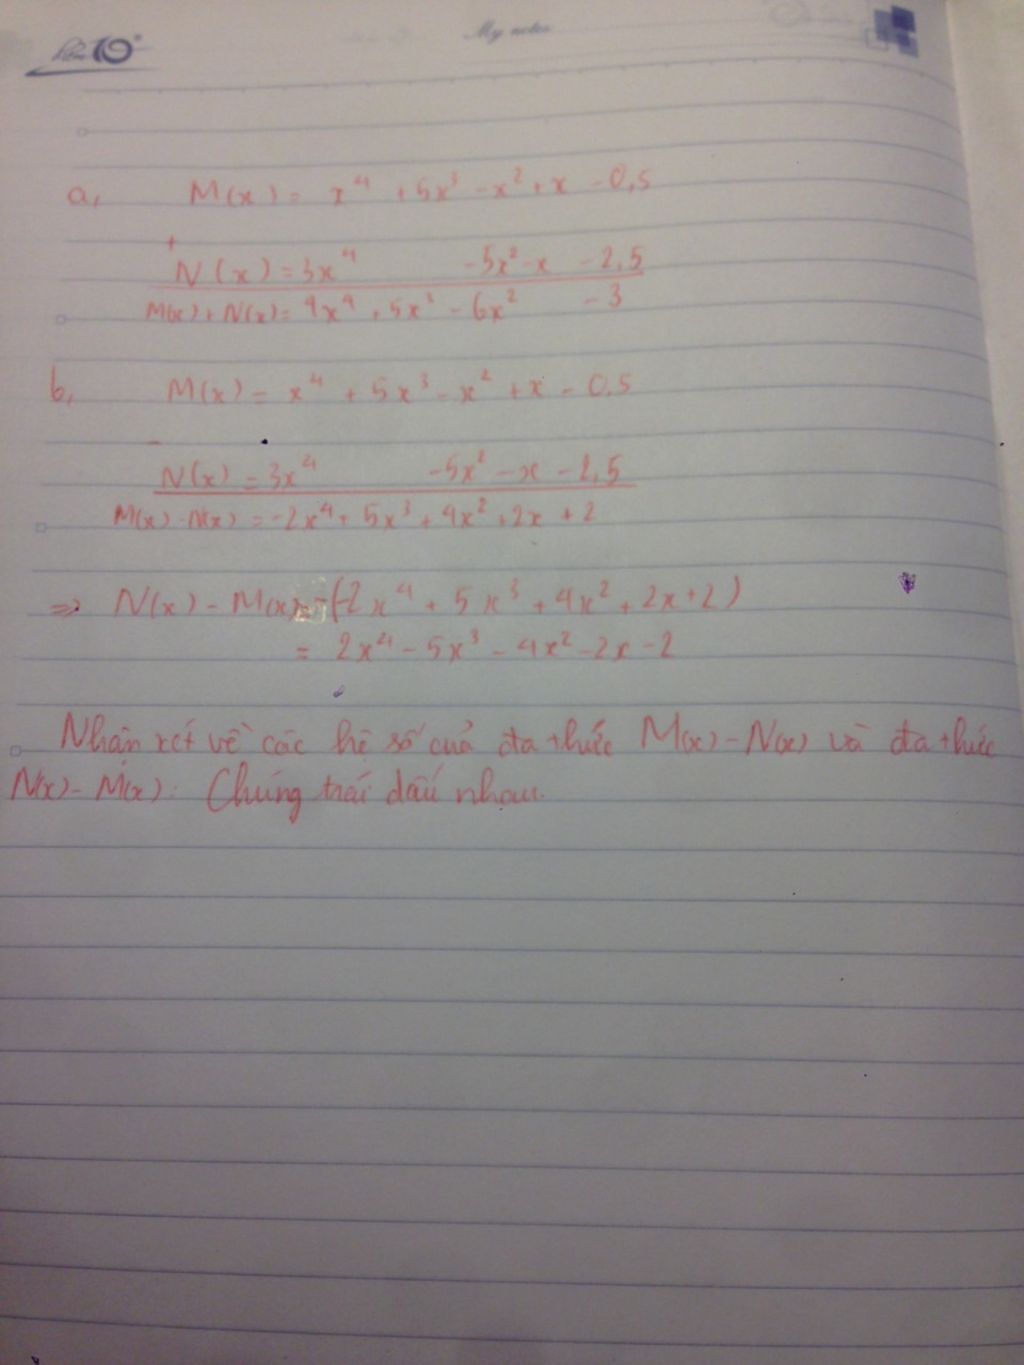 My notes
a, M(x) = x⁴ + 5x³ - x² + x - 0,5
+
N(x) = 3x⁴ - 5x² - x - 2,5
M(x) + N(x) = 4x⁴ + 5x³ - 6x² - 3
b, M(x) = x⁴ + 5x³ - x² + x - 0,5
-
N(x) = 3x⁴ - 5x² - x - 2,5
M(x) - N(x) = -2x⁴ + 5x³ + 4x² + 2x + 2
=> N(x) - M(x) = -(-2x⁴ + 5x³ + 4x² + 2x + 2)
= 2x⁴ - 5x³ - 4x² - 2x - 2
Nhận xét về các hệ số của đa thức M(x) - N(x) và đa thức
N(x) - M(x): Chúng trái dấu nhau.